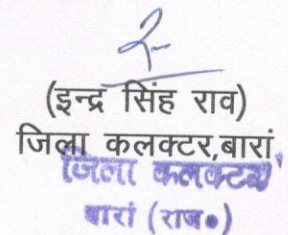 (इन्द्र सिंह राव)
जिला कलक्टर,बारां
जिला कलक्टर
बारां (राज०)